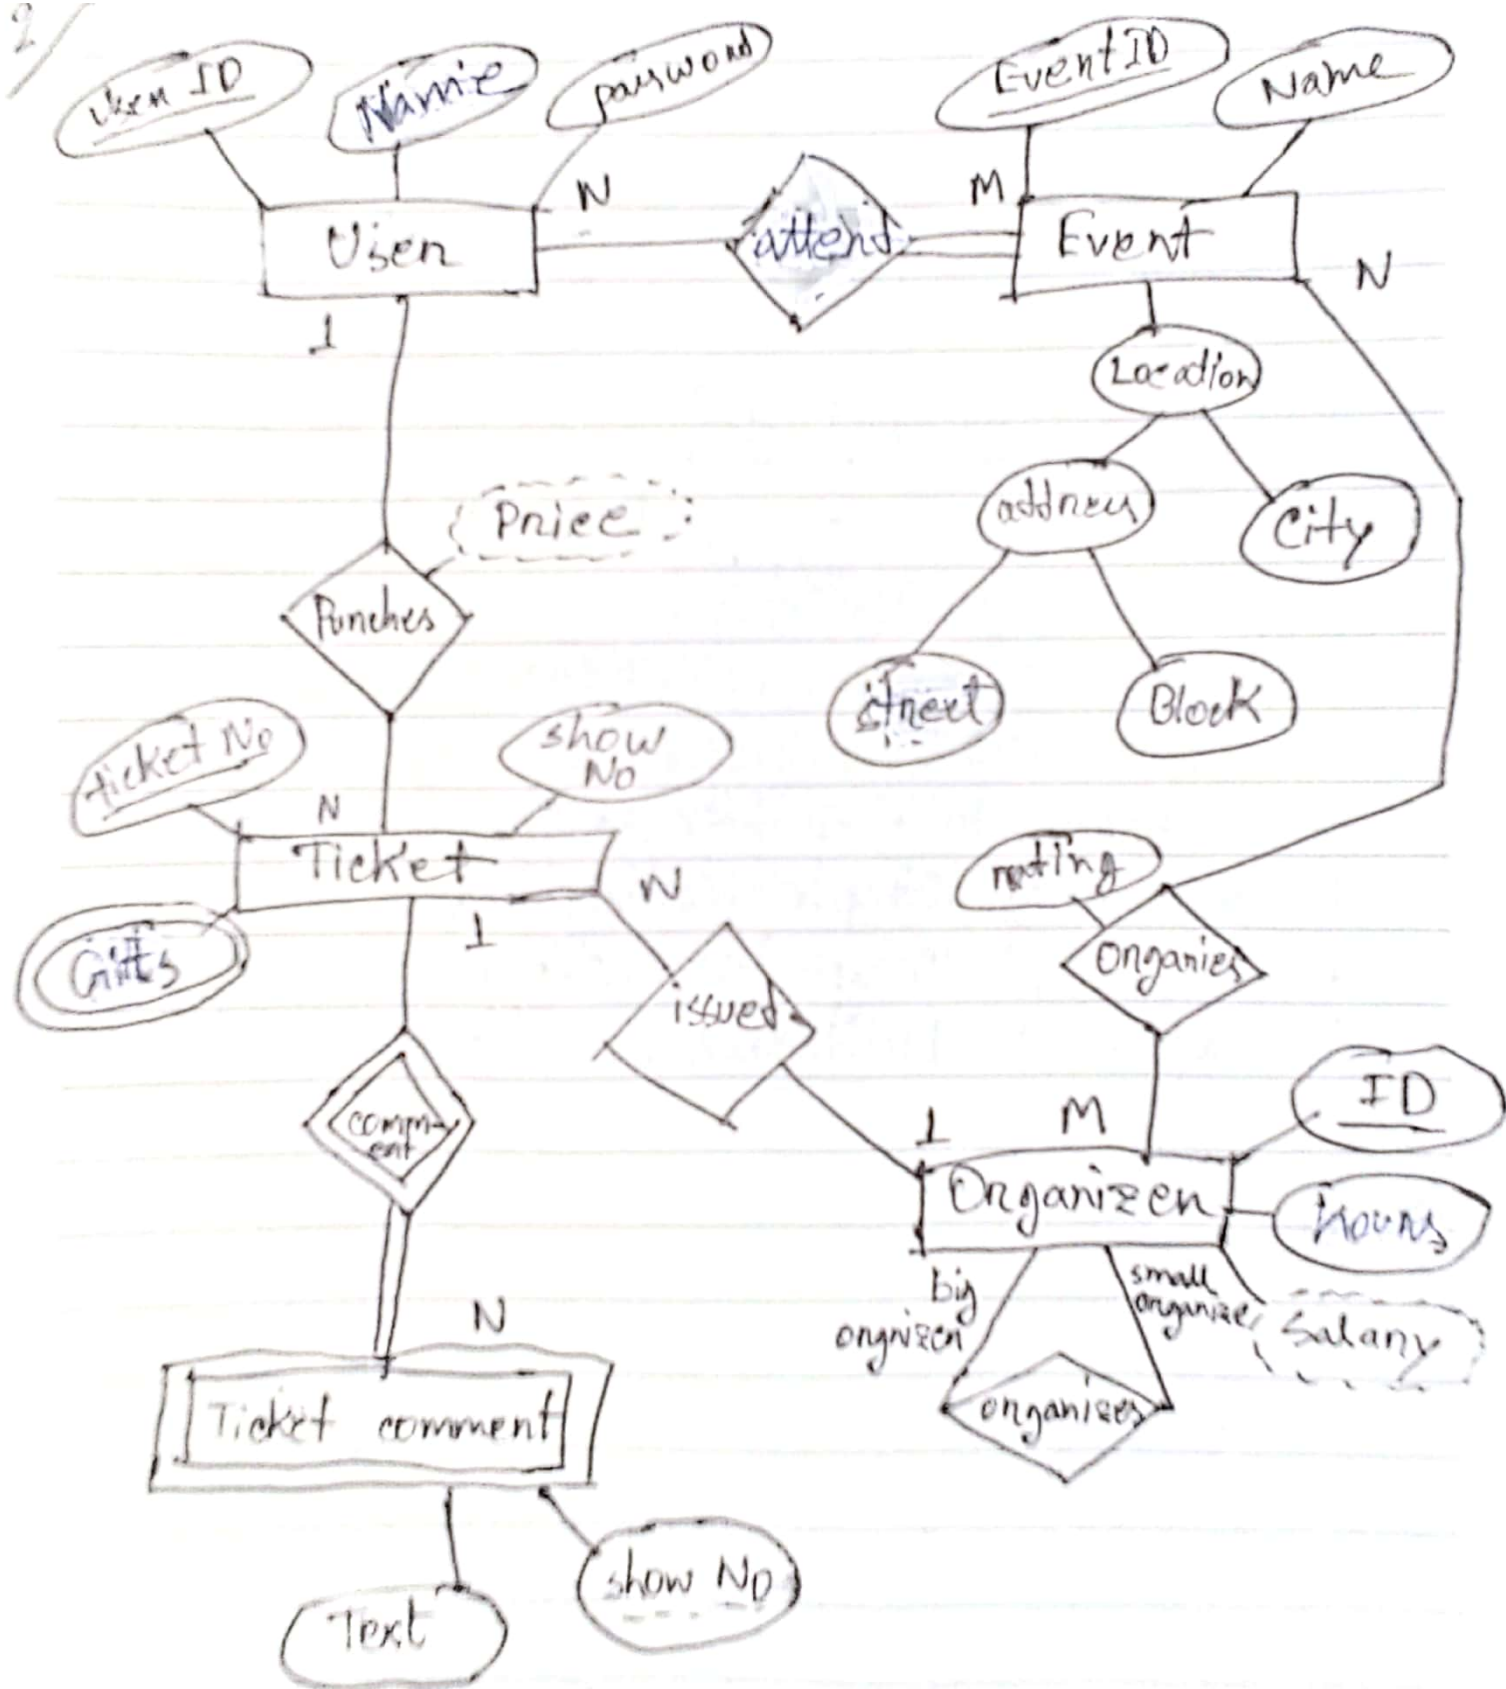 2/
User ID
Name
password
Event ID
Name
User
N
attend
M
Event
N
1
Location
address
City
Price
Punches
street
Block
ticket No
show
No
N
Ticket
N
rating
Gifts
1
issued
Organies
comm-
ent
1
M
ID
Organizer
Hours
big
orgnizer
small
organizer
Salary
N
organizes
Ticket comment
show No
Text